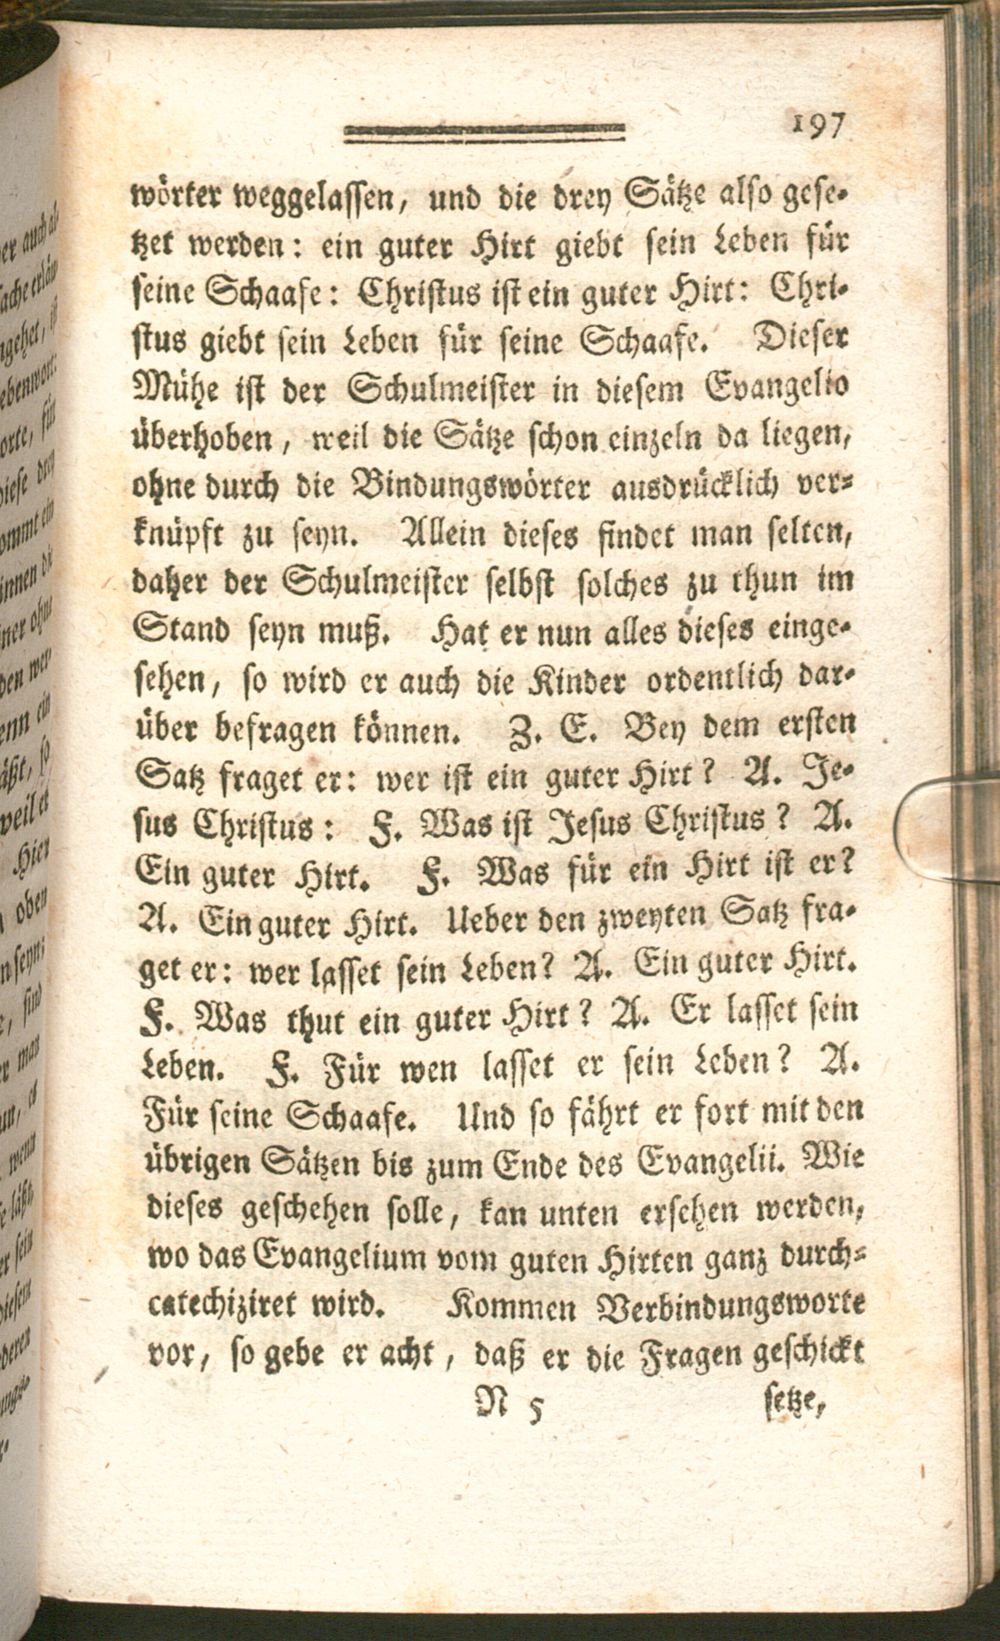 197
wörter weggelassen, und die drey Sätze also gese-
tzet werden: ein guter Hirt giebt sein Leben für
seine Schaafe: Christus ist ein guter Hirt: Chri-
stus giebt sein Leben für seine Schaafe. Dieser
Mühe ist der Schulmeister in diesem Evangelio
überhoben, weil die Sätze schon einzeln da liegen,
ohne durch die Bindungswörter ausdrücklich ver-
knüpft zu seyn. Allein dieses findet man selten,
daher der Schulmeister selbst solches zu thun im
Stand seyn muß. Hat er nun alles dieses einge-
sehen, so wird er auch die Kinder ordentlich dar-
über befragen können. Z. E. Bey dem ersten
Satz fraget er: wer ist ein guter Hirt? A. Je-
sus Christus: F. Was ist Jesus Christus? A.
Ein guter Hirt. F. Was für ein Hirt ist er?
A. Ein guter Hirt. Ueber den zweyten Satz fra-
get er: wer lasset sein Leben? A. Ein guter Hirt.
F. Was thut ein guter Hirt? A. Er lasset sein
Leben. F. Für wen lasset er sein Leben? A.
Für seine Schaafe. Und so fährt er fort mit den
übrigen Sätzen bis zum Ende des Evangelii. Wie
dieses geschehen solle, kan unten ersehen werden,
wo das Evangelium vom guten Hirten ganz durch-
catechiziret wird. Kommen Verbindungsworte
vor, so gebe er acht, daß er die Fragen geschickt
N 5 setze,